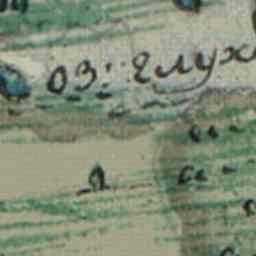 оз: глух